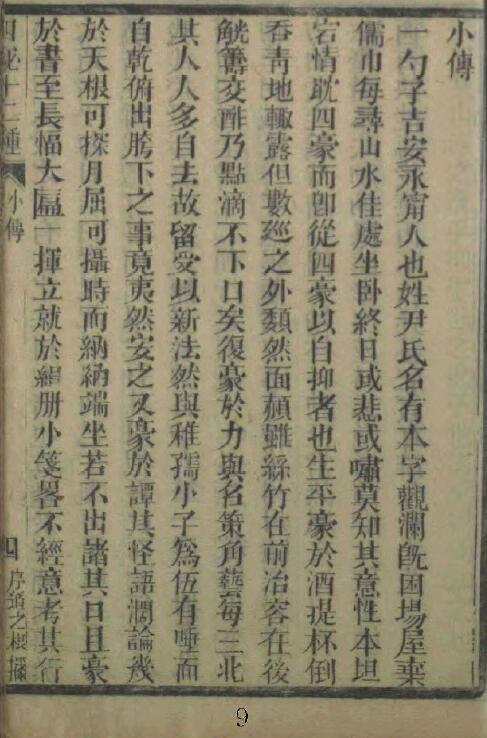 小傳
一勺子吉安永甯人也姓尹氏名有本字觀瀾旣困場屋棄
儒巾每尋山水佳處坐卧終日或悲或嘯莫知其意性本坦
宕情耽四豪而卽從四豪以自抑者也生平豪於酒提杯倒
吞靑地輙露但數廵之外頽然面頳雖絲竹在前冶容在後
觥籌交酢乃點滴不下口矣復豪於力與名策角藝每三北
其人人多自去故留受以新法然與稚孺小子爲伍有唾面
自乾俯出胯下之事竟夷然安之又豪於譚其怪語濶論幾
於天根可探月屈可攝時而納納端坐若不出諸其口且豪
於書至長幅大區一揮立就於絹册小箋畧不經意考其行
四秘十二種
小傳
四
序道之樓
9